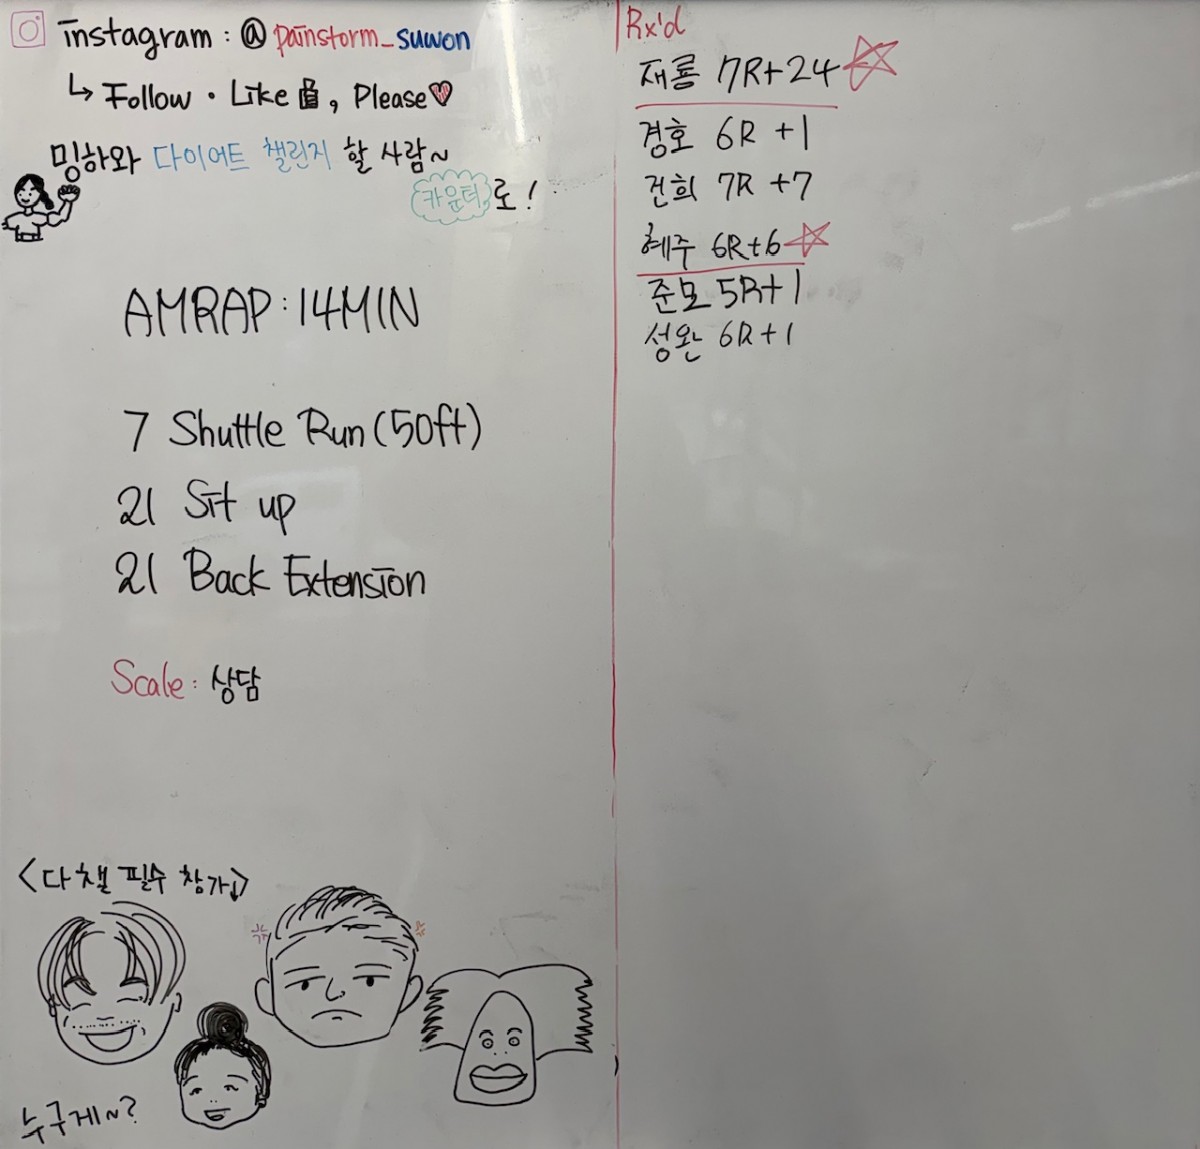 instagram : @painstorm_suwon
↳ Follow · Like 👍, Please♥
밍하와 다이어트 챌린지 할 사람~
카운터로!
AMRAP : 14MIN
7 Shuttle Run (50ft)
21 Sit up
21 Back Extension
Scale : 상담
<다챌 필수 참가↓>
누구게~?
Rx'd
재룡 7R+24
경호 6R +1
건희 7R +7
혜주 6R+6
준모 5R+1
성완 6R+1